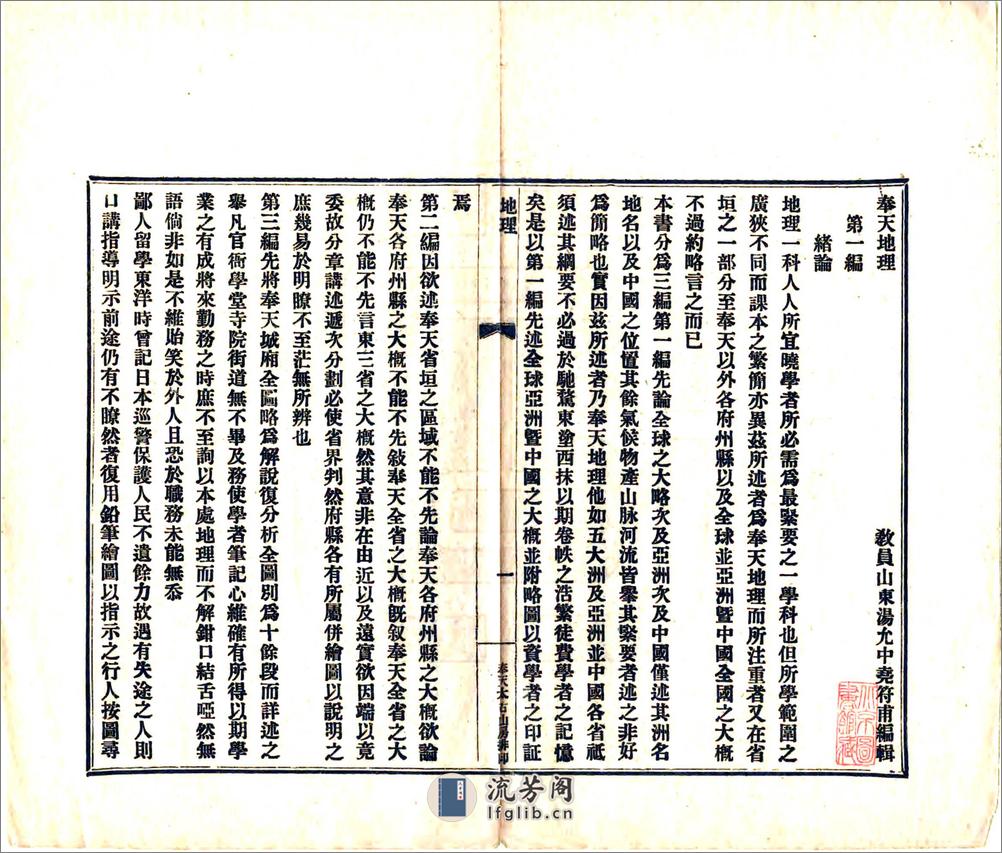 奉天地理
教員山東湯允中堯符甫編輯
第一編
緒論
地理一科人人所宜曉學者所必需爲最緊要之一學科也但所學範圍之
廣狹不同而課本之繁簡亦異茲所述者爲奉天地理而所注重者又在省
垣之一部分至奉天以外各府州縣以及全球並亞洲曁中國全國之大槪
不過約略言之而已
本書分爲三編第一編先論全球之大略次及亞洲次及中國僅述其洲名
地名以及中國之位置其餘氣候物產山脉河流皆畧其緊要者述之非好
爲簡略也實因茲所述者乃奉天地理他如五大洲及亞洲並中國各省祗
須述其綱要不必過於馳騖東塗西抹以期卷帙之浩繁徒費學者之記憶
矣是以第一編先述全球亞洲曁中國之大槪並附略圖以資學者之印証
地理
一
奉天本石山房排印
焉
第二編因欲述奉天省垣之區域不能不先論奉天各府州縣之大槪欲論
奉天各府州縣之大槪不能不先敍奉天全省之大槪旣叙奉天全省之大
槪仍不能不先言東三省之大槪然其意非在由近以及遠實欲因端以竟
委故分章講述遞次分劃必使省界判然府縣各有所屬併繪圖以說明之
庶幾易於明瞭不至茫無所辨也
第三編先將奉天城廂全圖略爲解說復分析全圖別爲十餘段而詳述之
舉凡官衙學堂寺院街道無不畢及務使學者筆記心維確有所得以期學
業之有成將來勤務之時庶不至詢以本處地理而不解鉗口結舌啞然無
語倘非如是不維貽笑於外人且恐於職務未能無忝
鄙人留學東洋時曾記日本巡警保護人民不遺餘力故遇有失途之人則
口講指導明示前途仍有不瞭然者復用鉛筆繪圖以指示之行人按圖尋
流芳阁
lfglib.cn